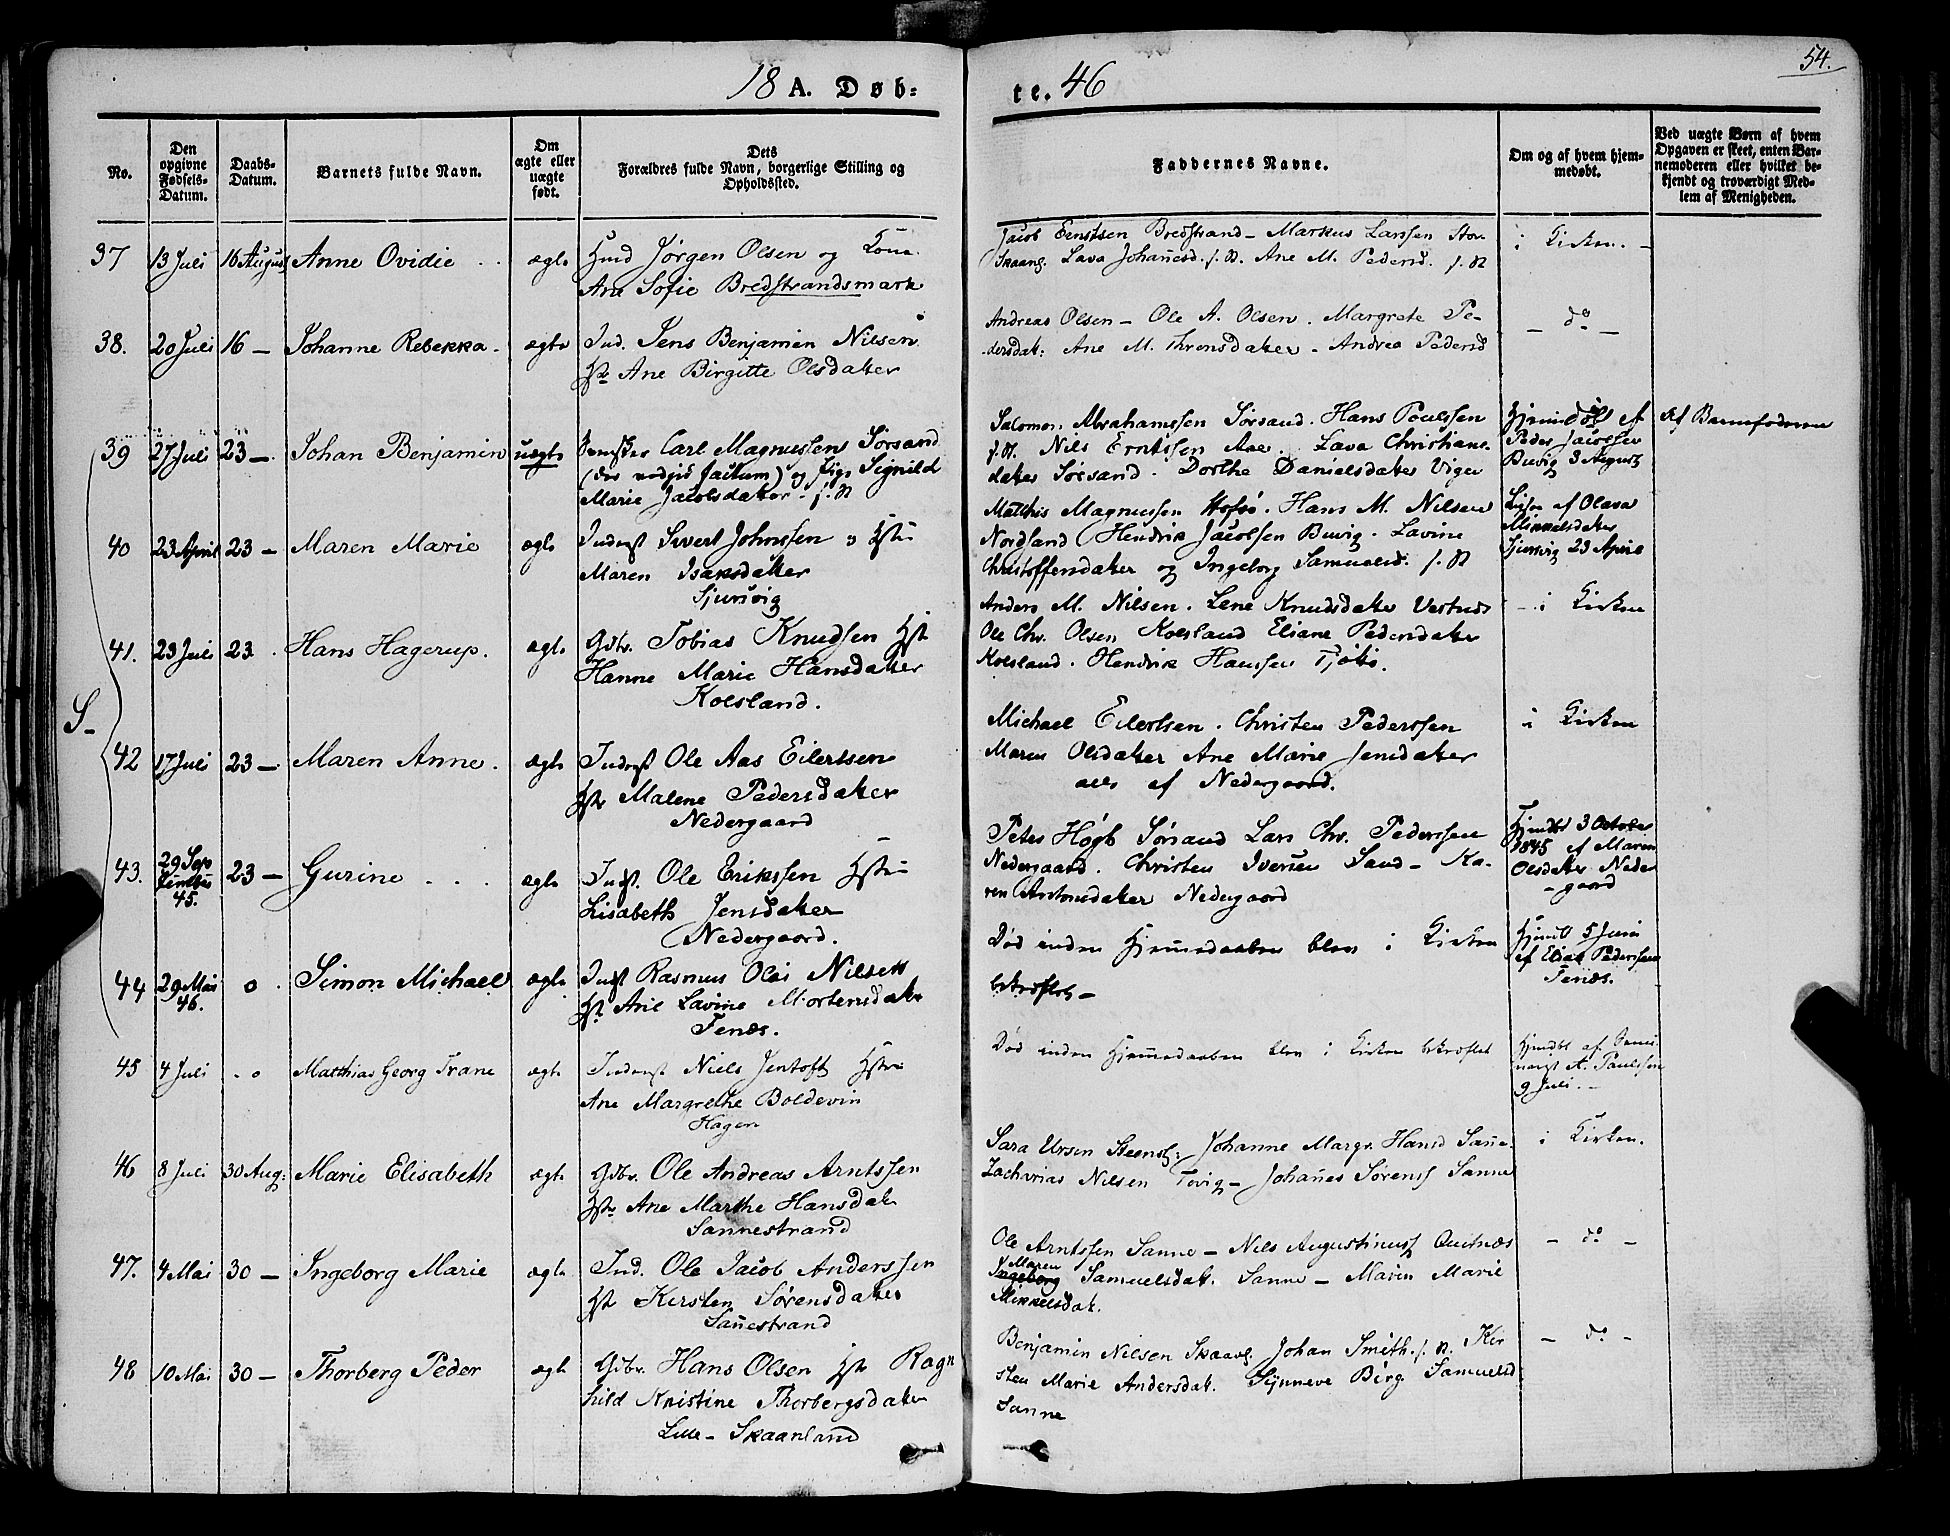 54.
18 A. Døb=
te. 46
No.
Den
opgivne
Fødsels-
Datum.
Daabs-
Datum.
Barnets fulde Navn.
Om
ægte eller
uægte
født.
Dets
Forældres fulde Navn, borgerlige Stilling og
Opholdssted.
Faddernes Navne.
Om og af hvem hjem-
medøbt.
Ved uægte Børn af hvem
Opgaven er skeet, enten Bar-
nemoderen eller hvilket be-
kjendt og troværdigt Med-
lem af Menigheden.
37 13 Juli 16 August Anne Ovidie ægte
Jørgen Olsen og Kone
Ane Sofie Bredstrandsmark
Jacob Bredstrand - Markus Larssen Stor
Skaanl. Lava Johañesd. f. st. Ane M. Pedersd. f. st
i Kirken. -
38. 20 Juli 16 - Johanne Rebekka - ægte
Ind. Jens Benjamin Nilsen
Hst Ane Birgitte Olsdatter
Andreas Olsen - Ole A. Olsen. Margrete Pe-
dersdat: Ane M. Thronsdatter - Andrea Pedersd
- do -
39 27 Juli 23 - Johan Benjamin uægte
Carl Magnussens Sørsand
og Pige Signild
Marie Jacobsdatter - f. st
Salomon Abrahamssen Sørsand. Hans Poulssen
f. st. Nils Erntssen Lava Christians-
datter Sørsand. Dorthe Danielsdatter
Hjemdøbt af
Peder Jacobsen
Buvig 3 August
Af Barnefaderen
40 23 April 23 - Maren Marie ægte
Inderst Sivert Johnssen og Hstr
Maren Isaksdatter
Sjursvig
Matthis Magnussen Hofsø. Hans M. Nilsen
Nordsand Hendrik Jacobsen Buvig. Lavine
Christoffersdatter og Ingeborg Samuelsd. f. st
af Olava
Mikkelsdatter
Sjursvig 23 April
41. 23 Juli 23 Hans Hagerup. ægte
Gdbr. Tobias Knudsen Hst
Hanne Marie Hansdatter
Kolsland.
Anders M. Nilsen. Lene Knudsdatter
Ole Chr. Olsen Kolsland Eliane Pedersdatter
Kolsland. Hendrik Hanssen
- i Kirken
S-
42 17 Juli 23 - Maren Anne. ægte
Inderst Ole Aas Eilertsen
Hst Malene Pedersdatter
Nedergaard
Michael Eilertsen. Christen Pederssen
Maren Olsdatter Ane Marie Jensdatter
alle af Nedergaard.
i Kirken
43. 29 Sep
45. 23 - Gurine ægte
Indst. Ole Erikssen Hstr
Lisabeth Jensdatter
Nedergaard.
Peter Høgh Sørsand Lars Chr. Pederssen
Nedergaard. Christen Iversen Sand - Ka-
ren Antonsdatter Nedergaard
Hjmdbt 3 October
1845 af Maren
Olsdatter Neder
-gaard
44 29 Mai
46. o Simon Michael ægte
Indst Rasmus Olai Nilsen
Hst. Ane Lavine Mortensdatr
Fenæs.
Død inden Hjemmedaaben blev i Kirken
bekræftet -
Hjmdbt 5 Juni
af Elias Pederssen
Fenæs.
45 4 Juli - o Matthias Georg Trane ægte
Inderst Niels Jentoft Hstr
Ane Margrethe Boldevin
Hagen
Død inden Hjemmedaaben blev i Kirken bekræftet
Hjmdbt af Semi-
narist A. Paulssen
9 Juli. -
46 8 Juli 30 Aug: Marie Elisabeth ægte
Gdbr. Ole Andreas Arntssen
Hst Ane Marthe Hansdatr
Sannestrand
Sara Ursen Steensl: Johanne Margr. Hansd Sañe.
Zacharias Nilsen Tovig - Johañes Sørenss Sanne
i Kirken.
47. 4 Mai 30 - Ingeborg Marie ægte
Ind. Ole Jacob Anderssen
Hst Kirsten Sørensdatter
Sañestrand
Ole Arntssen Sanne - Nils Augustinuss Quitnæs
Maren
Ingeborg Samuelsdat. Sanne - Maren Marie
Mikkelsdat.
- do -
48 10 Mai 30 - Thorberg Peder ægte
Gdbr. Hans Olsen Hst Ragn
hild Kristine Thorbergsdatter
Lille - Skaanland
Benjamin Nilsen Skaanl. Johan Smith. f. st. Kir
sten Marie Andersdat. Synneve Birg. Samuelsd
Sanne
- do -